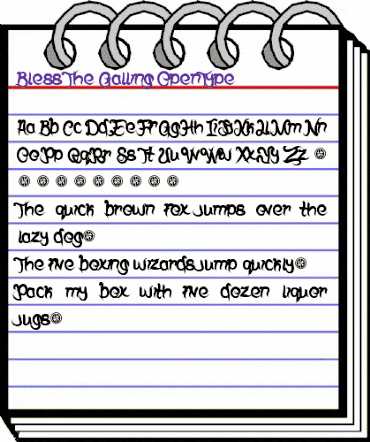 BlessThe Galling OpenType
Aa Bb Cc Dd Ee Ff Gg Hh Ii Jj Kk Ll Mm Nn
Oo Pp Qq Rr Ss Tt Uu Vv Ww Xx Yy Zz
The quick brown fox jumps over the
lazy dog
The five boxing wizards jump quickly
Pack my box with five dozen liquor
jugs